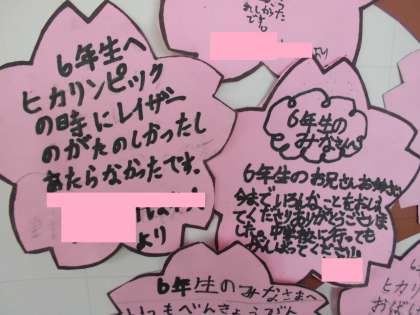 れしかった
です。
より
6年生へ
ヒカリンピック
の時にレイザー
のがたのしかったし
あたらなかったです。
より
6年生の
みなさんへ
6年生のお兄さんお姉さん
今までいろんなことをおしえ
てくださりありがとうございま
した。中学校に行っても
がんばってください!!
6年生のみなさまへ
いつもべんきょうでん
ヒカリ
おば